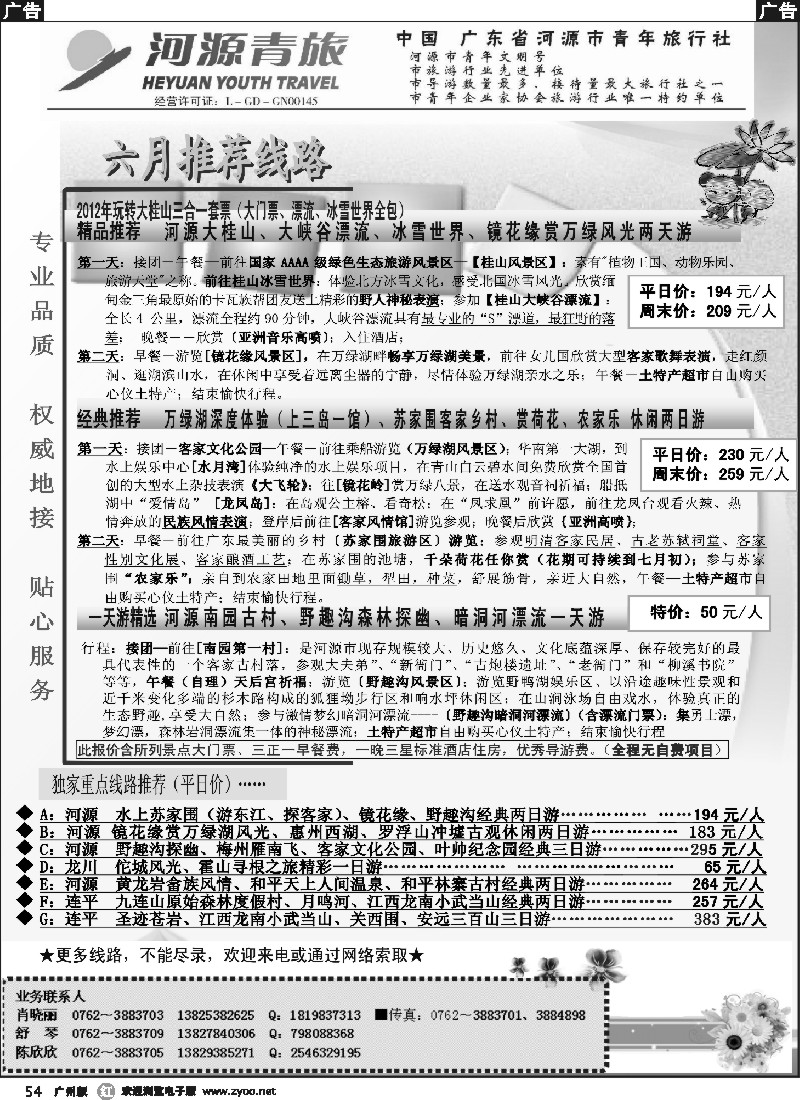 广告
广告
河源青旅
HEYUAN YOUTH TRAVEL
经营许可证：L－GD－GN00145
中国 广东省河源市青年旅行社
河源市青年文明号
市旅游行业先进单位
市导游数量最多、接待量最大旅行社之一
市青年企业家协会旅游行业唯一特约单位
六月推荐线路
专业品质 权威地接 贴心服务
2012年玩转大桂山三合一套票（大门票、漂流、冰雪世界全包）
精品推荐 河源大桂山、大峡谷漂流、冰雪世界、镜花缘赏万绿风光两天游
第一天：接团－午餐－前往国家 AAAA 级绿色生态旅游风景区—【桂山风景区】；素有"植物王国、动物乐园、
旅游天堂"之称。前往桂山冰雪世界：体验北方冰雪文化，感受北国冰雪风光。欣赏缅
甸金三角最原始的卡瓦族帮团友送上精彩的野人神秘表演；参加【桂山大峡谷漂流】：
全长 4 公里，漂流全程约 90 分钟，大峡谷漂流具有最专业的“S”漂道，最狂野的落
差； 晚餐－－欣赏〔亚洲音乐高喷〕；入住酒店；
平日价：194 元/人
周末价：209 元/人
第二天：早餐－游览[镜花缘风景区]，在万绿湖畔畅享万绿湖美景，前往女儿国欣赏大型客家歌舞表演，走红颜
洞、逛湖滨山水，在休闲中享受着远离尘嚣的宁静，尽情体验万绿湖亲水之乐；午餐－土特产超市自由购买
心仪土特产；结束愉快行程。
经典推荐 万绿湖深度体验（上三岛一馆）、苏家围客家乡村、赏荷花、农家乐 休闲两日游
第一天：接团－客家文化公园—午餐－前往乘船游览（万绿湖风景区）；华南第一大湖，到
水上娱乐中心[水月湾]体验纯净的水上娱乐项目，在青山白云碧水间免费欣赏全国首
创的大型水上杂技表演《大飞轮》；往[镜花岭]赏万绿八景，在送水观音祠祈福；船抵
湖中“爱情岛” [龙凤岛]：在岛观公主榕、看奇松；在“凤求凰”前许愿，前往龙凤台观看火辣、热
情奔放的民族风情表演；登岸后前往[客家风情馆]游览参观；晚餐后欣赏〔亚洲高喷〕；
平日价：230 元/人
周末价：259 元/人
第二天：早餐－前往广东最美丽的乡村〔苏家围旅游区〕游览；参观明清客家民居、古老苏轼祠堂、客家
性别文化展、客家酿酒工艺；在苏家围的池塘，千朵荷花任你赏（花期可持续到七月初）；参与苏家
围“农家乐”；亲自到农家田地里面锄草，犁田，种菜，舒展筋骨，亲近大自然，午餐—土特产超市自
由购买心仪土特产；结束愉快行程。
一天游精选 河源南园古村、野趣沟森林探幽、暗洞河漂流一天游
特价：50 元/人
行程：接团—前往[南园第一村]：是河源市现存规模较大、历史悠久、文化底蕴深厚、保存较完好的最
具代表性的一个客家古村落，参观大夫弟”、“新衙门”、“古炮楼遗址”、“老衙门”和“柳溪书院”
等等，午餐（自理）天后宫祈福；游览〔野趣沟风景区〕；游览野鸭湖娱乐区、以沿途趣味性景观和
近千米变化多端的杉木路构成的狐狸坳步行区和响水坪休闲区；在山涧泳场自由戏水，体验真正的
生态野趣，享受大自然；参与激情梦幻暗洞河漂流——〔野趣沟暗洞河漂流〕（含漂流门票）：集勇士漂，
梦幻漂，森林岩洞漂流集一体的神秘漂流；土特产超市自由购买心仪土特产；结束愉快行程
此报价含所列景点大门票、三正一早餐费，一晚三星标准酒店住房，优秀导游费。（全程无自费项目）
独家重点线路推荐（平日价）……
◆ A：河源 水上苏家围（游东江、探客家）、镜花缘、野趣沟经典两日游…………… ……194 元/人
◆ B：河源 镜花缘赏万绿湖风光、惠州西湖、罗浮山冲墟古观休闲两日游…………… 183 元/人
◆ C：河源 野趣沟探幽、梅州雁南飞、客家文化公园、叶帅纪念园经典三日游……………295 元/人
◆ D：龙川 佗城风光、霍山寻根之旅精彩一日游………………………………………… 65 元/人
◆ E：河源 黄龙岩畲族风情、和平天上人间温泉、和平林寨古村经典两日游…………… 264 元/人
◆ F：连平 九连山原始森林度假村、月鸣河、江西龙南小武当山经典两日游…………… 257 元/人
◆ G：连平 圣迹苍岩、江西龙南小武当山、关西围、安远三百山三日游………………… 383 元/人
★更多线路，不能尽录，欢迎来电或通过网络索取★
业务联系人
肖晓丽 0762～3883703 13825382625 Q：1819837313 ■传真：0762～3883701、3884898
舒 琴 0762～3883709 13827840306 Q：798088368
陈欣欣 0762～3883705 13829385271 Q：2546329195
54 广州版 红 欢迎浏览电子版 www.zyoo.net